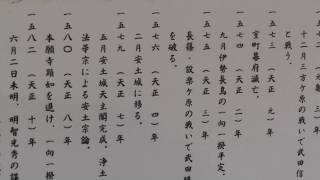 十二月三方ケ原の戦いで武田信
と戦う。
一五七三（天正元）年
室町幕府滅亡。
一五七四（天正二）年
九月伊勢長島の一向一揆平定。
一五七五（天正三）年
長篠・設楽ケ原の戦いで武田勝
を破る。
一五七六（天正四）年
二月安土城に移る。
一五七九（天正七）年
五月安土城天主閣完成。浄土
法華宗による安土宗論。
一五八〇（天正八）年
本願寺顕如を退け、一向一揆
一五八二（天正十）年
六月二日未明、明智光秀の謀